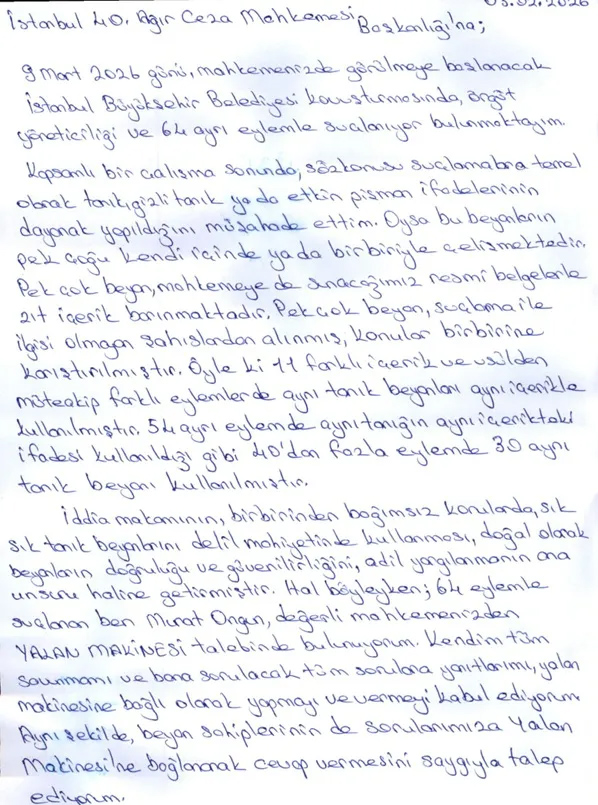 03.02.2026
İstanbul 40. Ağır Ceza Mahkemesi Başkanlığı'na;
9 Mart 2026 günü, mahkemenizde görülmeye başlanacak
İstanbul Büyükşehir Belediyesi kovuşturmasında, örgüt
yöneticiliği ve 64 ayrı eylemle suçlanıyor bulunmaktayım.
Kapsamlı bir çalışma sonunda, sözkonusu suçlamalara temel
olarak tanık, gizli tanık ya da etkin pişman ifadelerinin
dayanak yapıldığını müşahade ettim. Oysa bu beyanların
pek çoğu kendi içinde ya da birbiriyle çelişmektedir.
Pek çok beyan, mahkemeye de sunacağımız resmi belgelerle
zıt içerik barınmaktadır. Pek çok beyan, suçlama ile
ilgisi olmayan şahıslardan alınmış, konular birbirine
karıştırılmıştır. Öyle ki 11 farklı içerik ve usülden
müteakip farklı eylemlerde aynı tanık beyanları aynı içerikle
kullanılmıştır. 54 ayrı eylemde aynı tanığın aynı içerikteki
ifadesi kullanıldığı gibi 40'dan fazla eylemde 30 ayrı
tanık beyanı kullanılmıştır.
İddia makamının, birbirinden bağımsız konularda, sık
sık tanık beyanlarını delil mahiyetinde kullanması, doğal olarak
beyanların doğruluğu ve güvenilirliğini, adil yargılanmanın ana
unsuru haline getirmiştir. Hal böyleyken; 64 eylemle
suçlanan ben Murat Ongun, değerli mahkemenizden
YALAN MAKİNESİ talebinde bulunuyorum. Kendim tüm
savunmamı ve bana sorulacak tüm sorulara yanıtlarımı, yalan
makinesine bağlı olarak yapmayı ve vermeyi kabul ediyorum.
Aynı şekilde, beyan sahiplerinin de sorularımıza Yalan
Makinesi'ne bağlanarak cevap vermesini saygıyla talep
ediyorum.